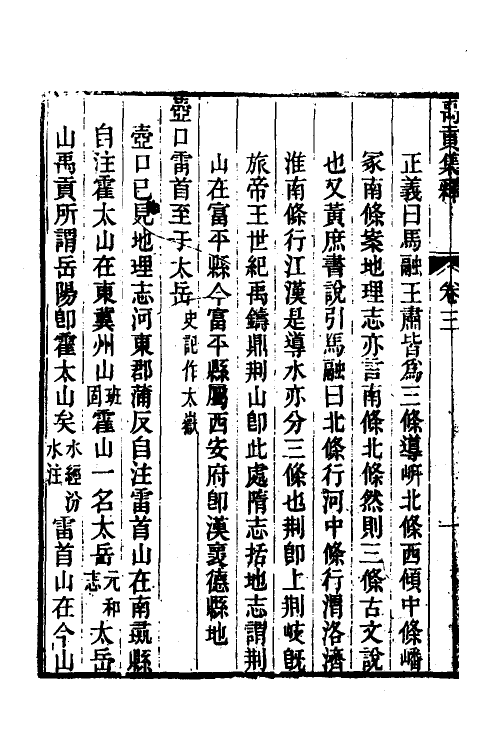 禹貢集釋 卷三 一
正義曰馬融王肅皆爲三條導岍北條西傾中條嶓
冢南條案地理志亦言南條北條然則三條古文說
也又黃庶書說引馬融曰北條行河中條行渭洛濟
淮南條行江漢是導水亦分三條也荆卽上荆岐旣
旅帝王世紀禹鑄鼎荆山卽此處隋志括地志謂荆
山在富平縣今富平縣屬西安府卽漢褱德縣地
壺口雷首至于太岳史記作太嶽
壺口已見地理志河東郡蒲反自注雷首山在南彘縣
自注霍太山在東冀州山班固霍山一名太岳元和志太岳
山禹貢所謂岳陽卽霍太山矣水經汾水注雷首山在今山